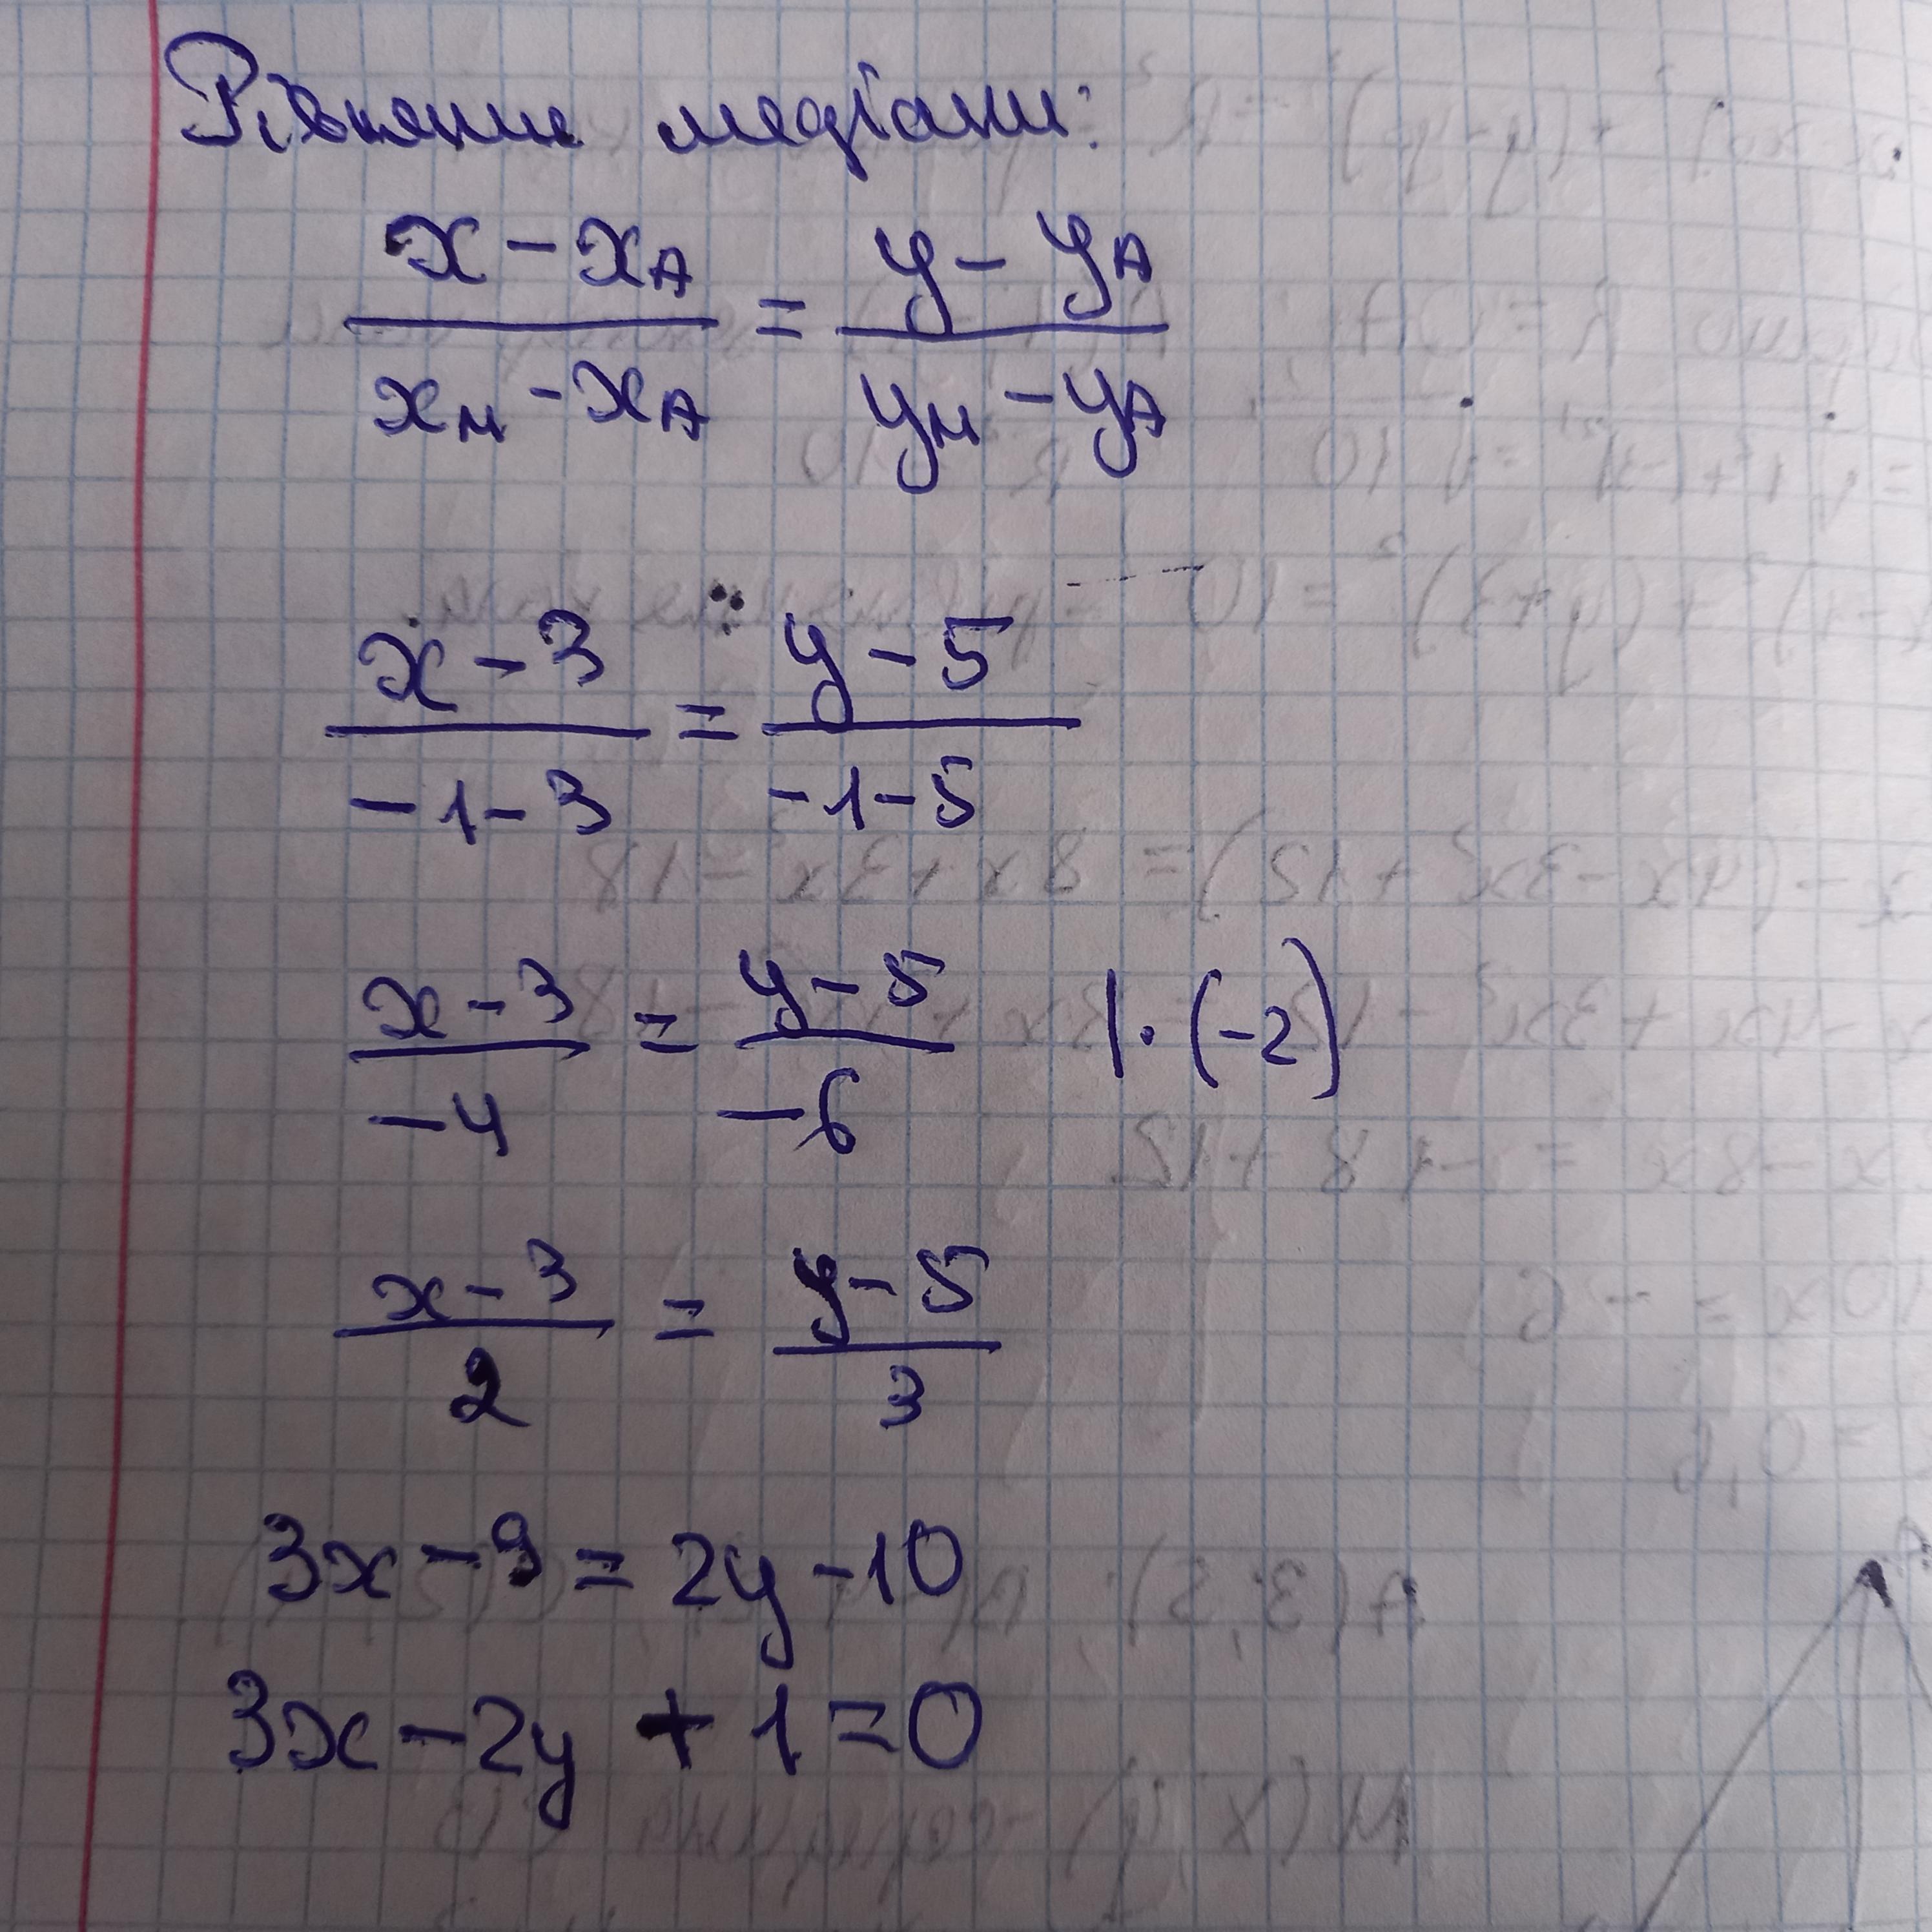 Рівняння медіани:
(x - x_A)/(x_M - x_A) = (y - y_A)/(y_M - y_A)
(x - 3)/(-1 - 3) = (y - 5)/(-1 - 5)
(x - 3)/(-4) = (y - 5)/(-6) | · (-2)
(x - 3)/2 = (y - 5)/3
3x - 9 = 2y - 10
3x - 2y + 1 = 0